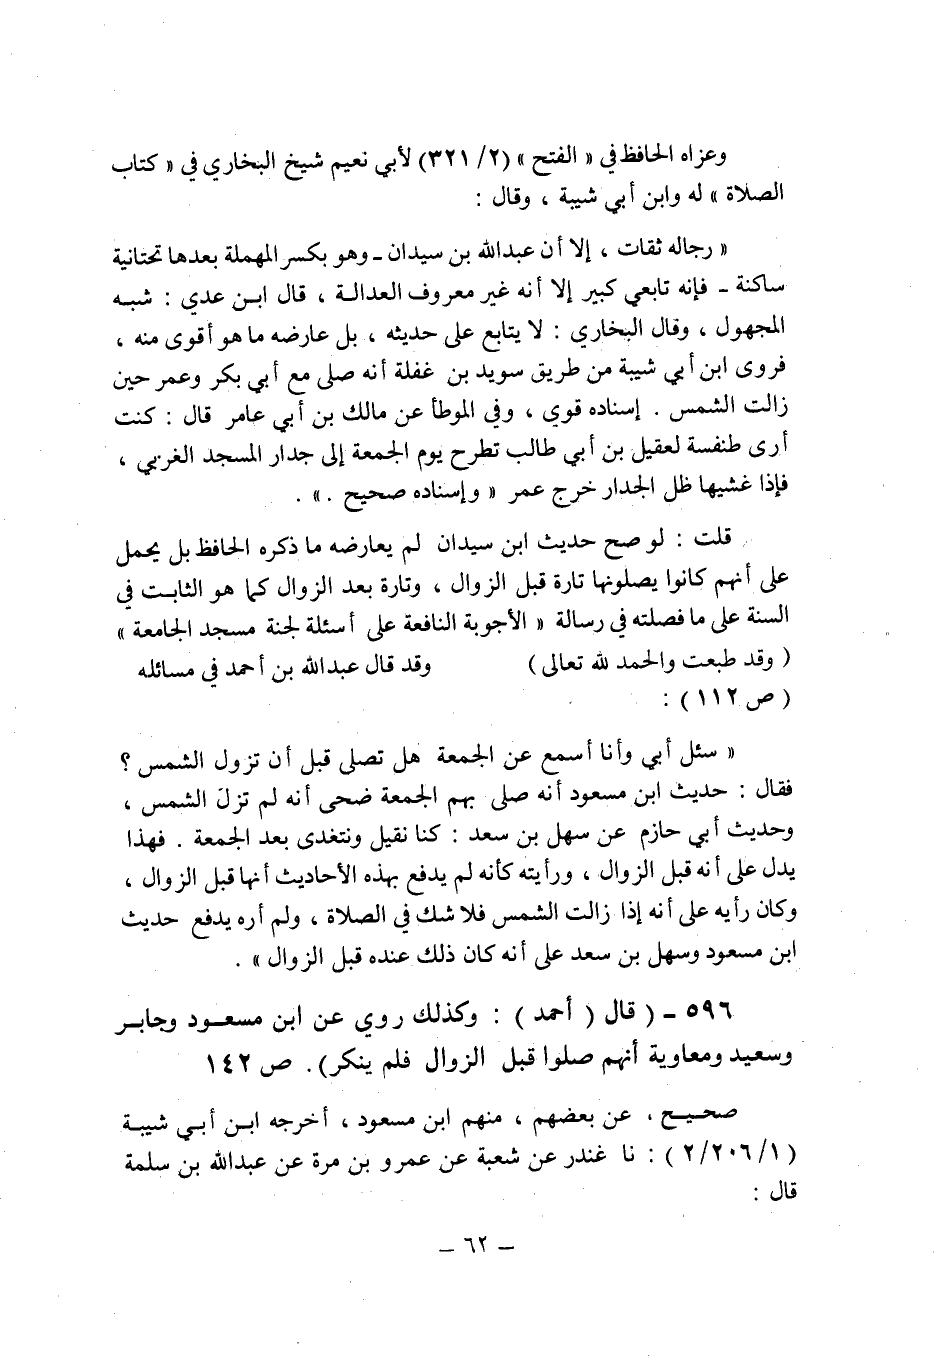 وعزاه الحافظ في « الفتح » (٢/ ٣٢١) لأبي نعيم شيخ البخاري في « كتاب
الصلاة » له وابن أبي شيبة ، وقال :
« رجاله ثقات ، إلا أن عبدالله بن سيدان ـ وهو بكسر المهملة بعدها تحتانية
ساكنة ـ فإنه تابعي كبير إلا أنه غير معروف العدالة ، قال ابن عدي : شبه
المجهول ، وقال البخاري : لا يتابع على حديثه ، بل عارضه ما هو أقوى منه ،
فروى ابن أبي شيبة من طريق سويد بن غفلة أنه صلى مع أبي بكر وعمر حين
زالت الشمس . إسناده قوي ، وفي الموطأ عن مالك بن أبي عامر قال : كنت
أرى طنفسة لعقيل بن أبي طالب تطرح يوم الجمعة إلى جدار المسجد الغربي ،
فإذا غشيها ظل الجدار خرج عمر « وإسناده صحيح .» .
قلت : لو صح حديث ابن سيدان لم يعارضه ما ذكره الحافظ بل يحمل
على أنهم كانوا يصلونها تارة قبل الزوال ، وتارة بعد الزوال كما هو الثابت في
السنة على ما فصلته في رسالة « الأجوبة النافعة على أسئلة لجنة مسجد الجامعة »
( وقد طبعت والحمد لله تعالى ) وقد قال عبدالله بن أحمد في مسائله
( ص ١١٢ ) :
« سئل أبي وأنا أسمع عن الجمعة هل تصلى قبل أن تزول الشمس ؟
فقال : حديث ابن مسعود أنه صلى بهم الجمعة ضحى أنه لم تزل الشمس ،
وحديث أبي حازم عن سهل بن سعد : كنا نقيل ونتغدى بعد الجمعة . فهذا
يدل على أنه قبل الزوال ، ورأيته كأنه لم يدفع بهذه الأحاديث أنها قبل الزوال ،
وكان رأيه على أنه إذا زالت الشمس فلا شك في الصلاة ، ولم أره يدفع حديث
ابن مسعود وسهل بن سعد على أنه كان ذلك عنده قبل الزوال » .
٥٩٦ ـ ( قال ( أحمد ) : وكذلك روي عن ابن مسعود وجابر
وسعيد ومعاوية أنهم صلوا قبل الزوال فلم ينكر). ص ١٤٢
صحيح ، عن بعضهم ، منهم ابن مسعود ، أخرجه ابن أبي شيبة
( ١/ ٢/٢٠٦ ) : نا غندر عن شعبة عن عمرو بن مرة عن عبدالله بن سلمة
قال :
ـ ٦٢ ـ